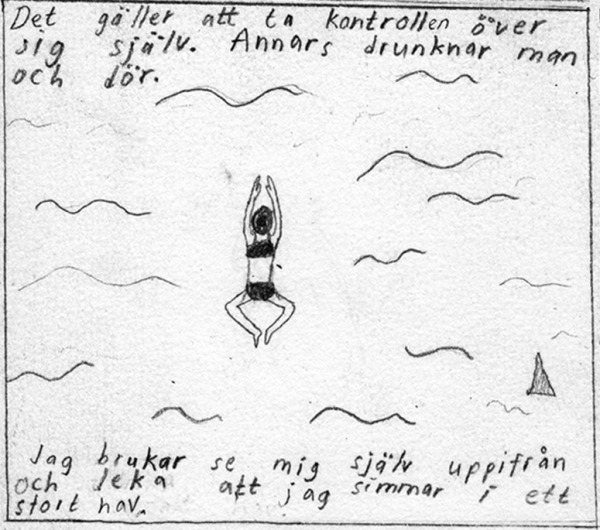 Det gäller att ta kontrollen över
sig själv. Annars drunknar man
och dör.
Jag brukar se mig själv uppifrån
och leka att jag simmar i ett
stort hav.